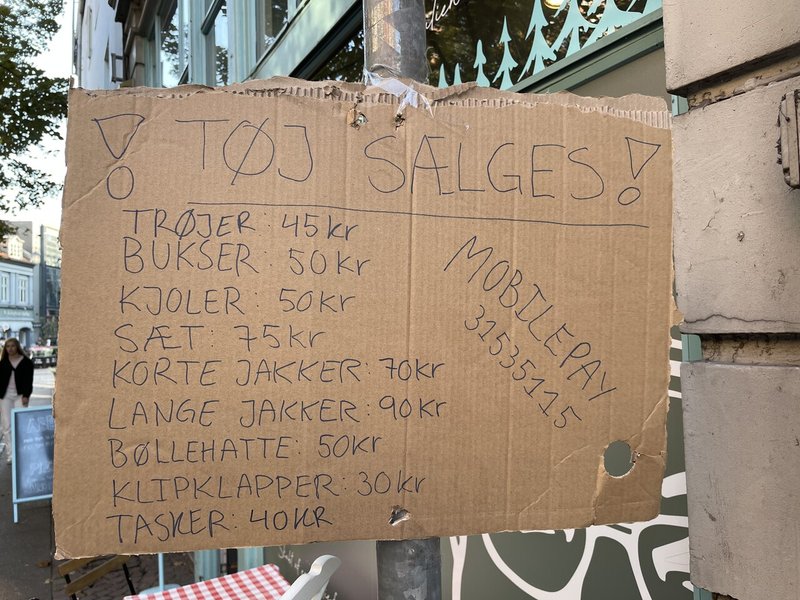 ! TØJ SÆLGES !
TRØJER: 45kr
BUKSER: 50kr
KJOLER: 50kr
SÆT: 75kr
KORTE JAKKER: 70kr
LANGE JAKKER: 90kr
BØLLEHATTE: 50kr
KLIPKLAPPER: 30kr
TASKER: 40KR
MOBILEPAY
31535115